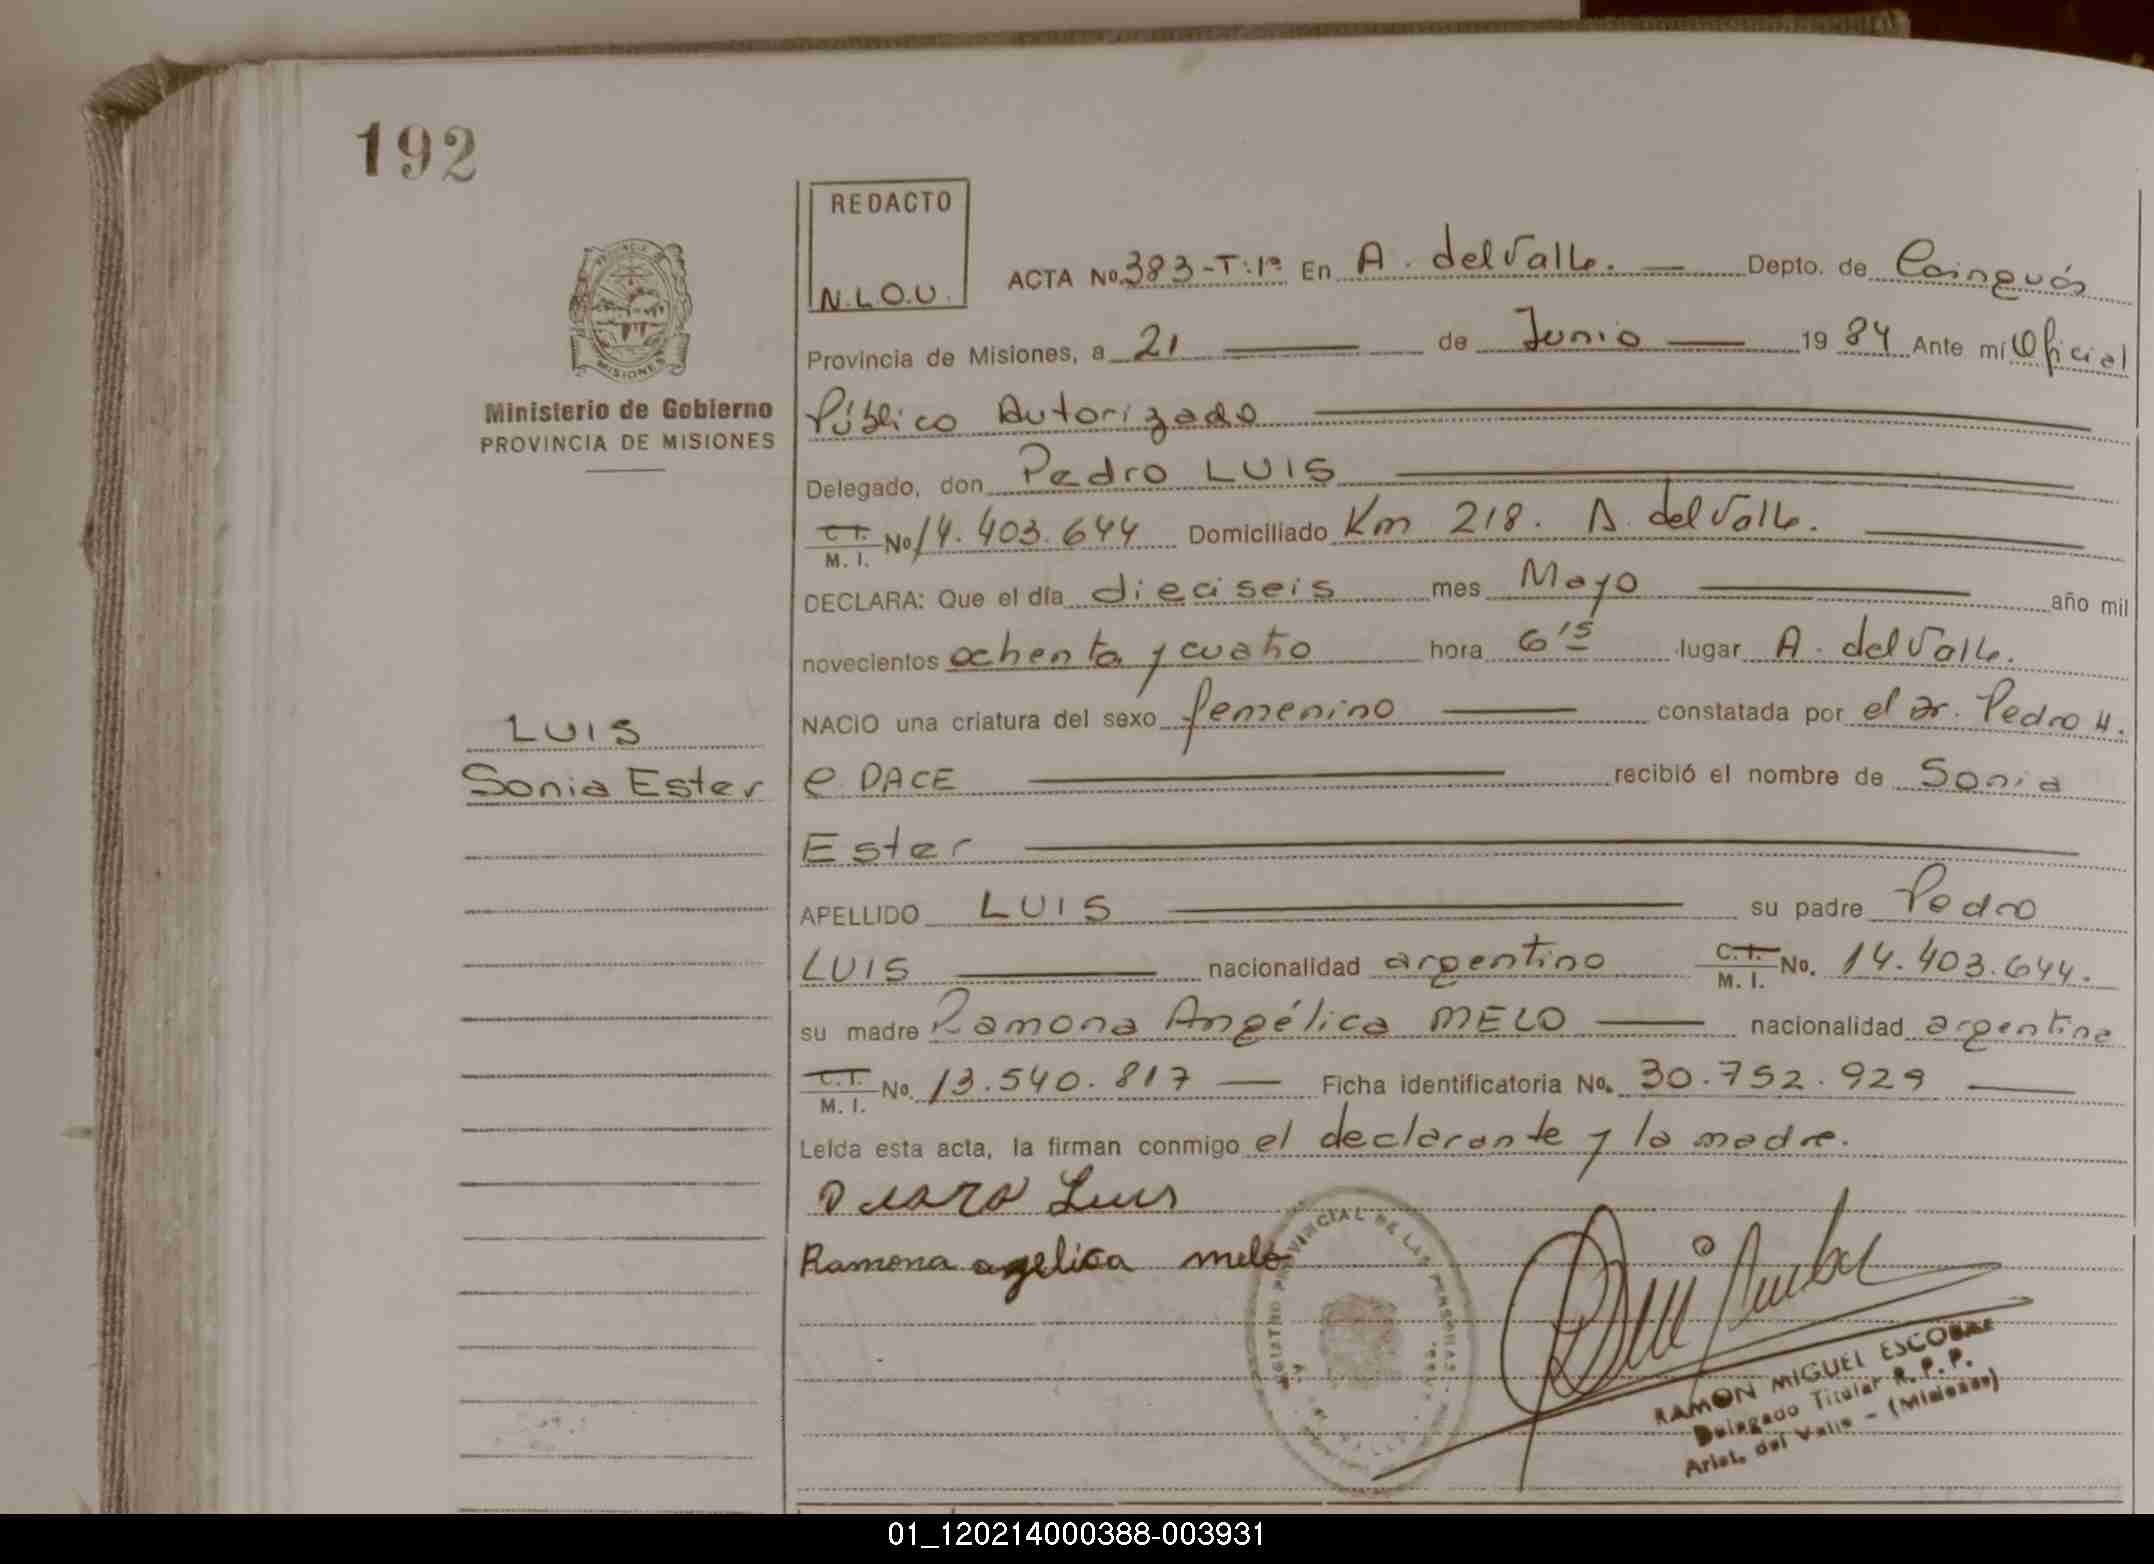 192
REDACTO
N.L.O.U.
ACTA No. 383-T:1º En A. del Valle. Depto. de Cainguás
Provincia de Misiones, a 21 de Junio 1984 Ante mí Oficial
Ministerio de Gobierno
PROVINCIA DE MISIONES
MISIONES
Público Autorizado
Delegado, don Pedro LUIS
C.I. M. I. No 14.403.644 Domiciliado Km 218. A. del Valle.
DECLARA: Que el día dieciseis mes Mayo año mil
novecientos ochenta y cuatro hora 6'15 lugar A. del Valle.
NACIO una criatura del sexo femenino constatada por el Dr. Pedro H.
LUIS
Sonia Ester
e. DACE recibió el nombre de Sonia
Ester
APELLIDO LUIS su padre Pedro
LUIS nacionalidad argentino C.I. M. I. No. 14.403.644.
su madre Ramona Angélica MELO nacionalidad argentina
C.I. M. I. No. 13.540.817 Ficha identificatoria No. 30.752.929
Leída esta acta, la firman conmigo el declarante y la madre.
Luis
Ramona agelica melo
PROVINCIAL DE LAS PERSONAS
RAMON MIGUEL ESCOBAR
Delegado Titular R. P. P.
Arist. del Valle - (Misiones)
01_120214000388-003931